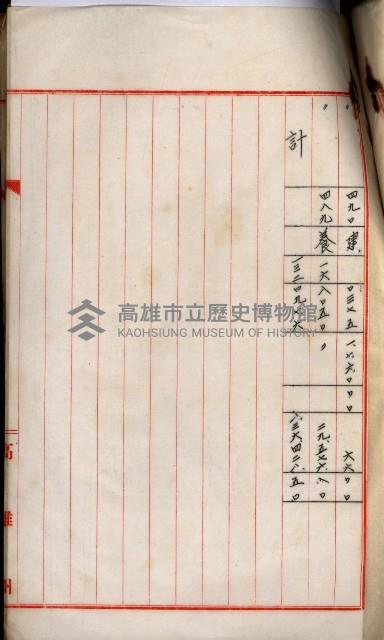 〃 四九〇 建 〇三七五 一、六六〇〇〇 六六〇〇
〃 四八九 養 一六八〇五〇 〃 二九、五七六、八〇
計 一三二〇九七六
高雄市立歷史博物館
KAOHSIUNG MUSEUM OF HISTORY
高雄州